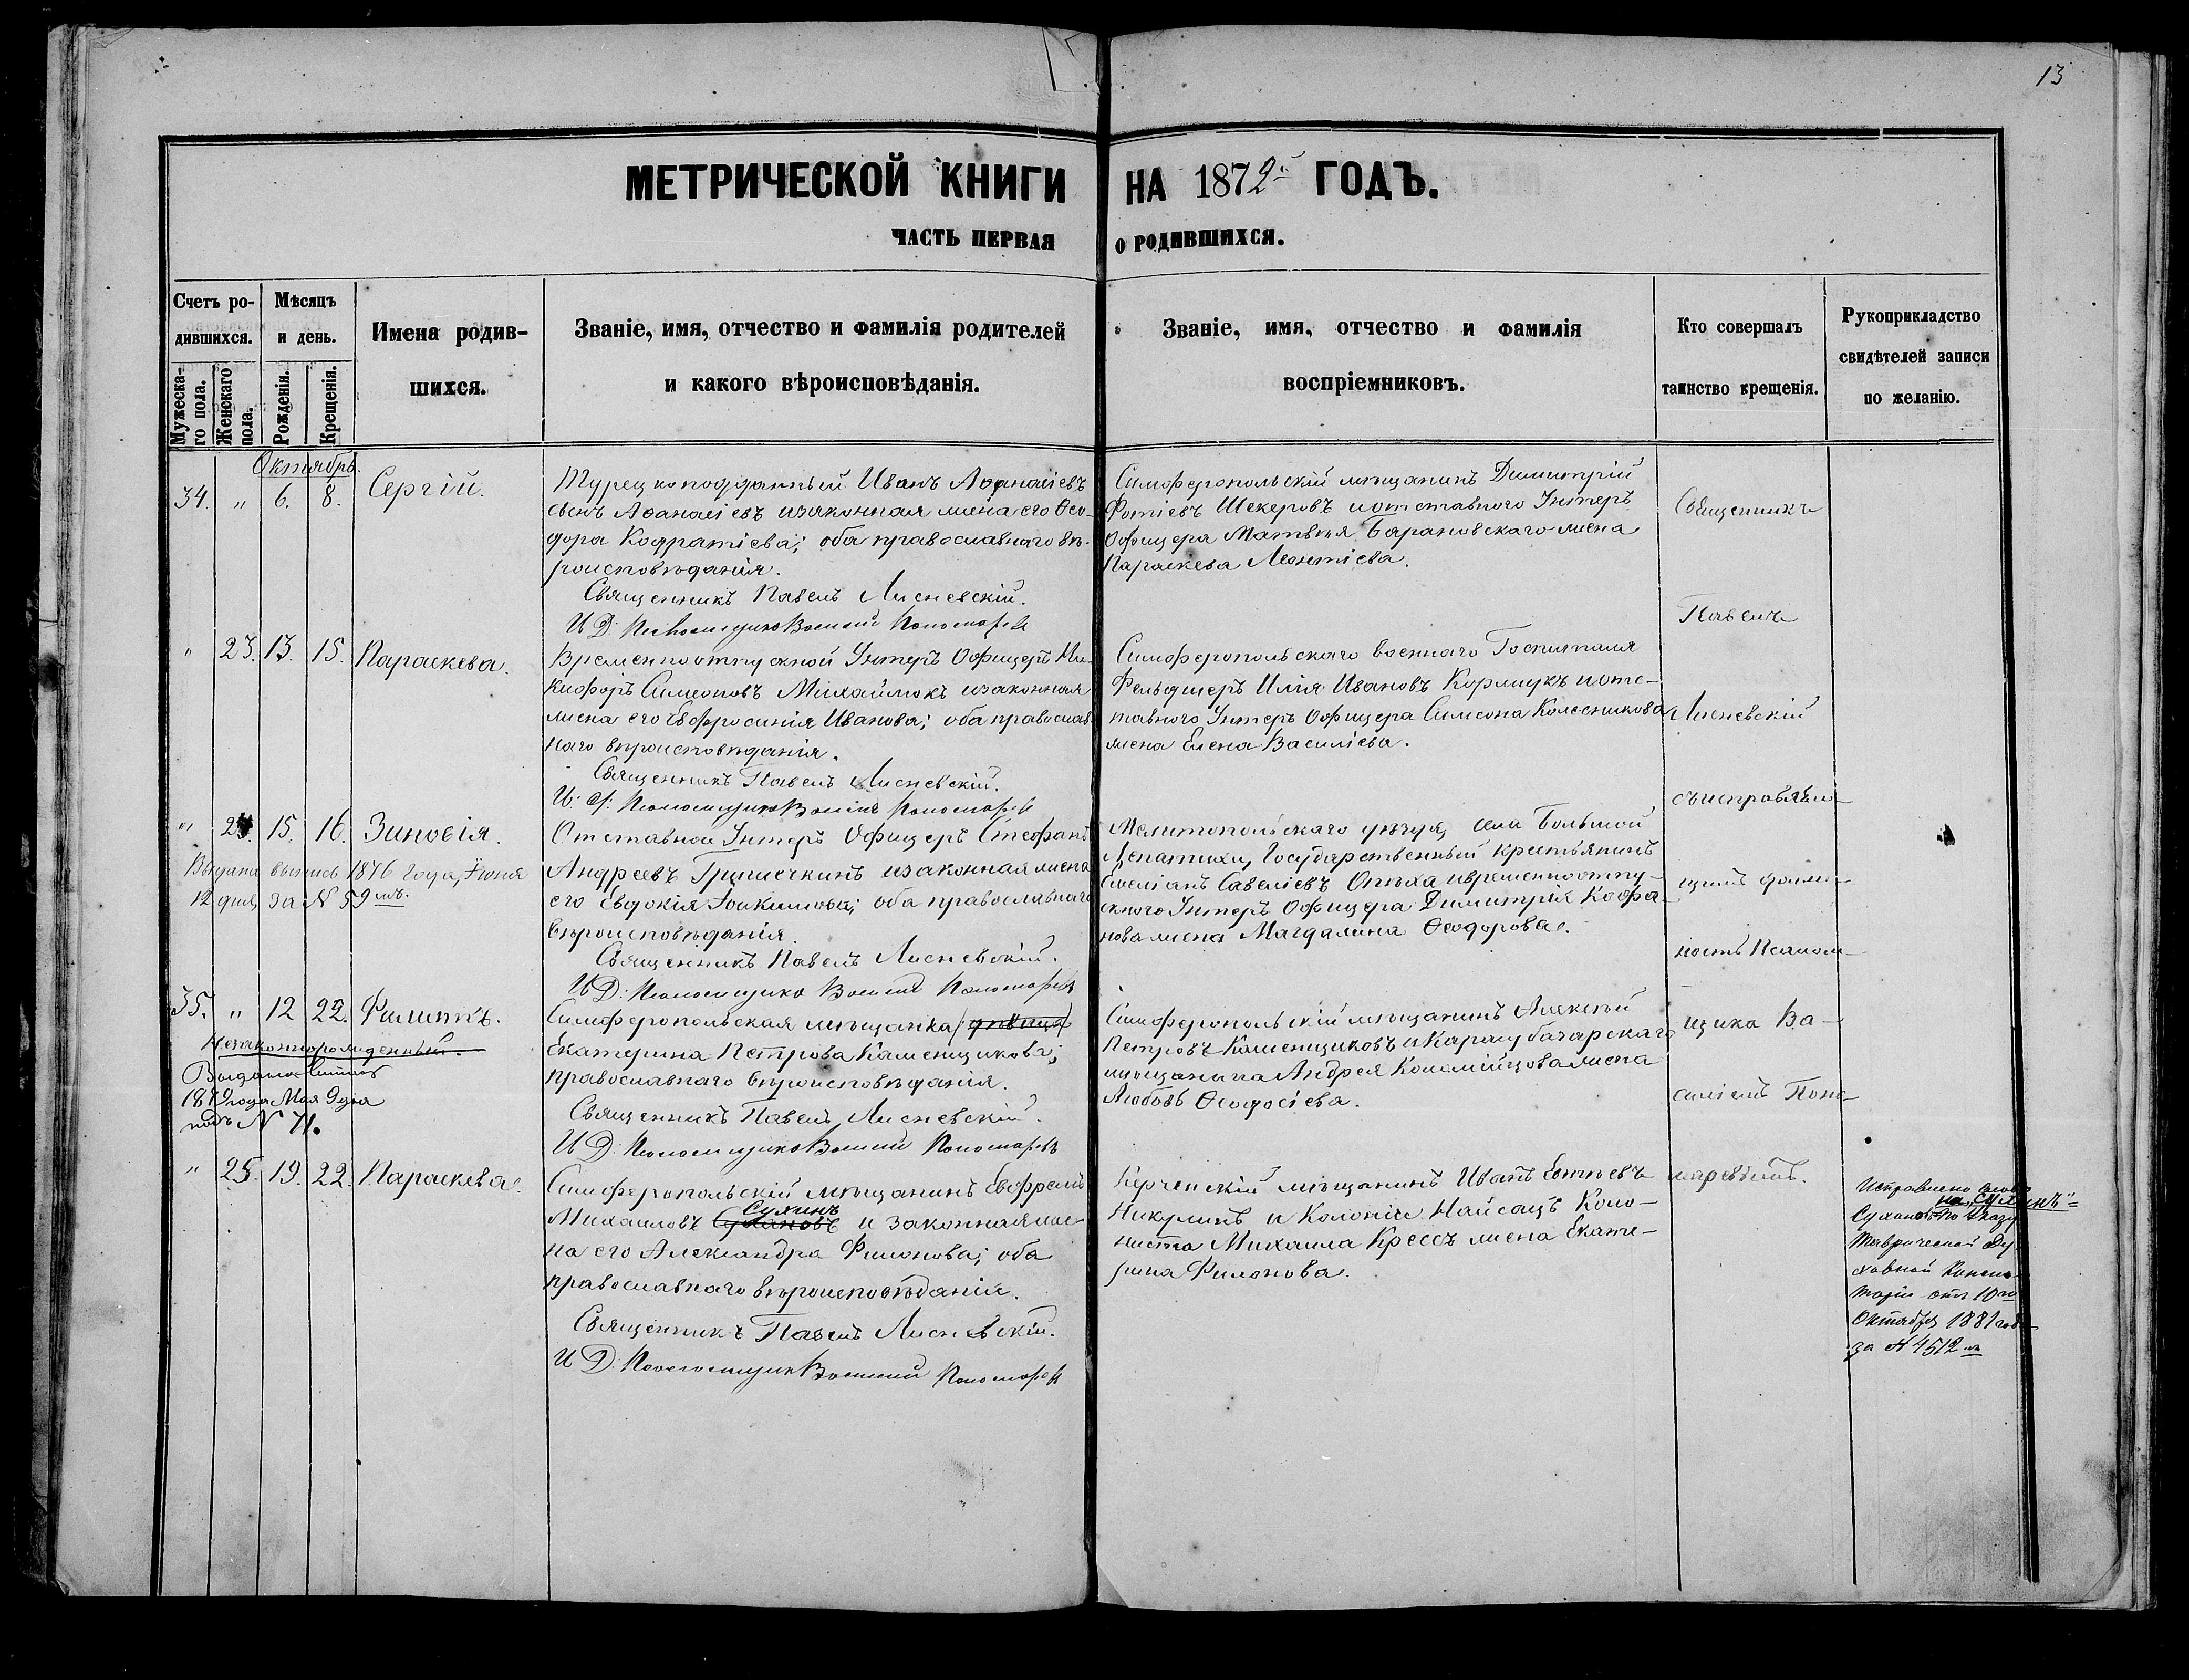 13
МЕТРИЧЕСКОЙ КНИГИ НА 1872й ГОДЪ.
ЧАСТЬ ПЕРВАЯ О РОДИВШИХСЯ.
Счетъ ро-
дившихся.
Мужеска-
го пола.
Женскаго
пола.
Мѣсяцъ
и день.
Рожденія.
Крещенія.
Имена родив-
шихся.
Званіе, имя, отчество и фамилія родителей
и какого вѣроисповѣданія.
Званіе, имя, отчество и фамилія
воспріемниковъ.
Кто совершалъ
таинство крещенія.
Рукоприкладство
свидѣтелей записи
по желанію.
Октябрь.
34. „ 6. 8. Сергій.
Турецкоподданный Иванъ Аѳанасіевъ
сынъ Аѳанасіевъ и законная жена его Ѳео-
дора Кодратіева; оба православнаго вѣ-
роисповѣданія.
Священникъ Павелъ Лисневскій.
И Д: Псаломщика Василій Пономаревъ
Симферопольскій мѣщанинъ Димитрій
Фотіевъ Шекеровъ и отставного Унтеръ
Офицера Матвѣя Барановскаго жена
Параскева Леонтіева.
„ 23. 13. 15. Параскева.
Временноотпускной Унтеръ Офицеръ Ни-
кифоръ Симеоновъ Михайлюкъ и законная
жена его Евфросинія Иванова; оба православ-
наго вѣроисповѣданія.
Священникъ Павелъ Лисневскій.
И: Д: Псаломщика Василій Пономаревъ
Симферопольскаго военнаго Госпиталя
Фельдшеръ Илія Ивановъ Кормщукъ и отс-
тавного Унтеръ Офицера Симеона Колесникова
жена Елена Василіева.
„ 24. 15. 16. Зиновія.
Выдана выпись 1876 года, Іюня
12 дня, за N 59мъ.
Отставной Унтеръ Офицеръ Стефанъ
Андреевъ Гришечкинъ и законная жена
его Евдокія Іоакимова; оба православнаго
вѣроисповѣданія.
Священникъ Павелъ Лисневскій.
И Д: Псаломщика Василій Пономаревъ
Мелитопольскаго уѣзда, села Большой
Лепатихи, Государственный крестьянинъ
Емеліанъ Савеліевъ и временноотпу-
скного Унтеръ Офицера Димитрія Кофа-
нова жена Магдалина Ѳеодорова.
35. „ 12 22. Филиппъ.
Незаконнорожденный.
Выдана выпись
1879 года Мая 9 дня
подъ N 71.
Симферопольская мѣщанка (дѣвица)
Екатерина Петрова Каменщикова;
православнаго вѣроисповѣданія.
Священникъ Павелъ Лисневскій.
И Д: Псаломщика Василій Пономаревъ
Симферопольскій мѣщанинъ Алексѣй
Петровъ Каменщиковъ и Карасубазарскаго
мѣщанина Андрея Коломійцова жена
Любовь Ѳеодосіева.
„ 25. 19. 22. Параскева.
Симферопольскій мѣщанинъ Евфремъ
Сухинъ
Михаиловъ Сухановъ и законная же-
на его Александра Филонова; оба
православнаго вѣроисповѣданія.
Священникъ Павелъ Лисневскій.
И Д: Псаломщика Василій Пономаревъ
Керченскій мѣщанинъ Иванъ Евтѣевъ
Никулинъ и Колоніи Найсацъ Коло-
ниста Михаила Крессъ жена Екате-
рина Филонова.
Священникъ
Павелъ
Лисневскій
съ исправляю-
щимъ долж-
ность Псалом-
щика Ва-
силіемъ Поно-
маревымъ.
Исправлено слово
на „Сухинъ"
Сухановъ по Указу
Таврической Ду-
ховной Консис-
торіи отъ 10го
Октября 1881 года
за N 4512мъ